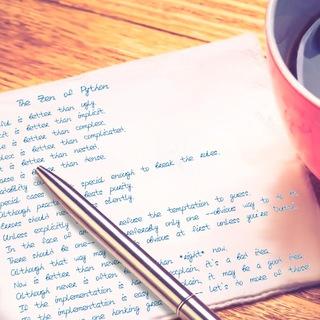 The Zen of Python
is better than ugly.
is better than implicit.
is better than complex.
is better than complicated.
is better than nested.
is better than dense.
special enough to break the rules.
Although practi beats purity.
silently.
Unless explicitly
In the face of refuse the temptation to guess.
There should be one-- preferably only one --obvious way to do it.
Although that way may obvious at first unless you're Dutch.
Now is better than never.
Although never is often than *right* now.
If the implementation is explain, it's a bad idea.
If the implementation is easy explain, it may be a good idea.
are one honking great let's do more of those